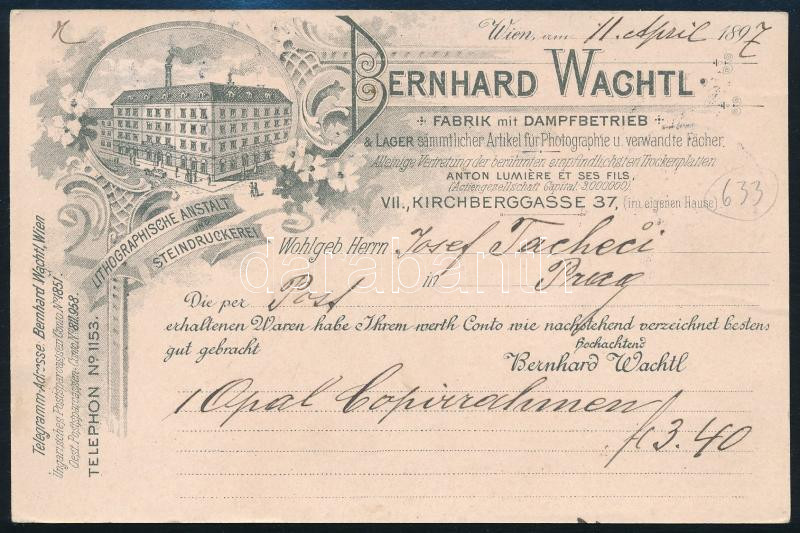 Wien, am 11. April 1897
BERNHARD WACHTL.
FABRIK mit DAMPFBETRIEB
& LAGER sämmtlicher Artikel für Photographie u. verwandte Fächer.
Alleinige Vertretung der berühmten empfindlichsten Trockenplatten
ANTON LUMIÈRE ET SES FILS,
(Actiengesellschaft Capital: 3000000)
VII., KIRCHBERGGASSE 37, (im eigenen Hause)
633
LITHOGRAPHISCHE ANSTALT
STEINDRUCKEREI
Telegramm-Adresse: Bernhard Wachtl, Wien
Ungarisches Postsparcassen-Conto Nº 1851.
Oest. Postsparcassen-Conto Nº 821.958.
TELEPHON Nº 1153.
Wohlgeb. Herrn Josef Tacheči
in Prag
Die per Post
erhaltenen Waren habe Ihrem werth Conto wie nachstehend verzeichnet bestens
gut gebracht
Hochachtend
Bernhard Wachtl
1 Opal Copirrahmen
3.40
darabanth